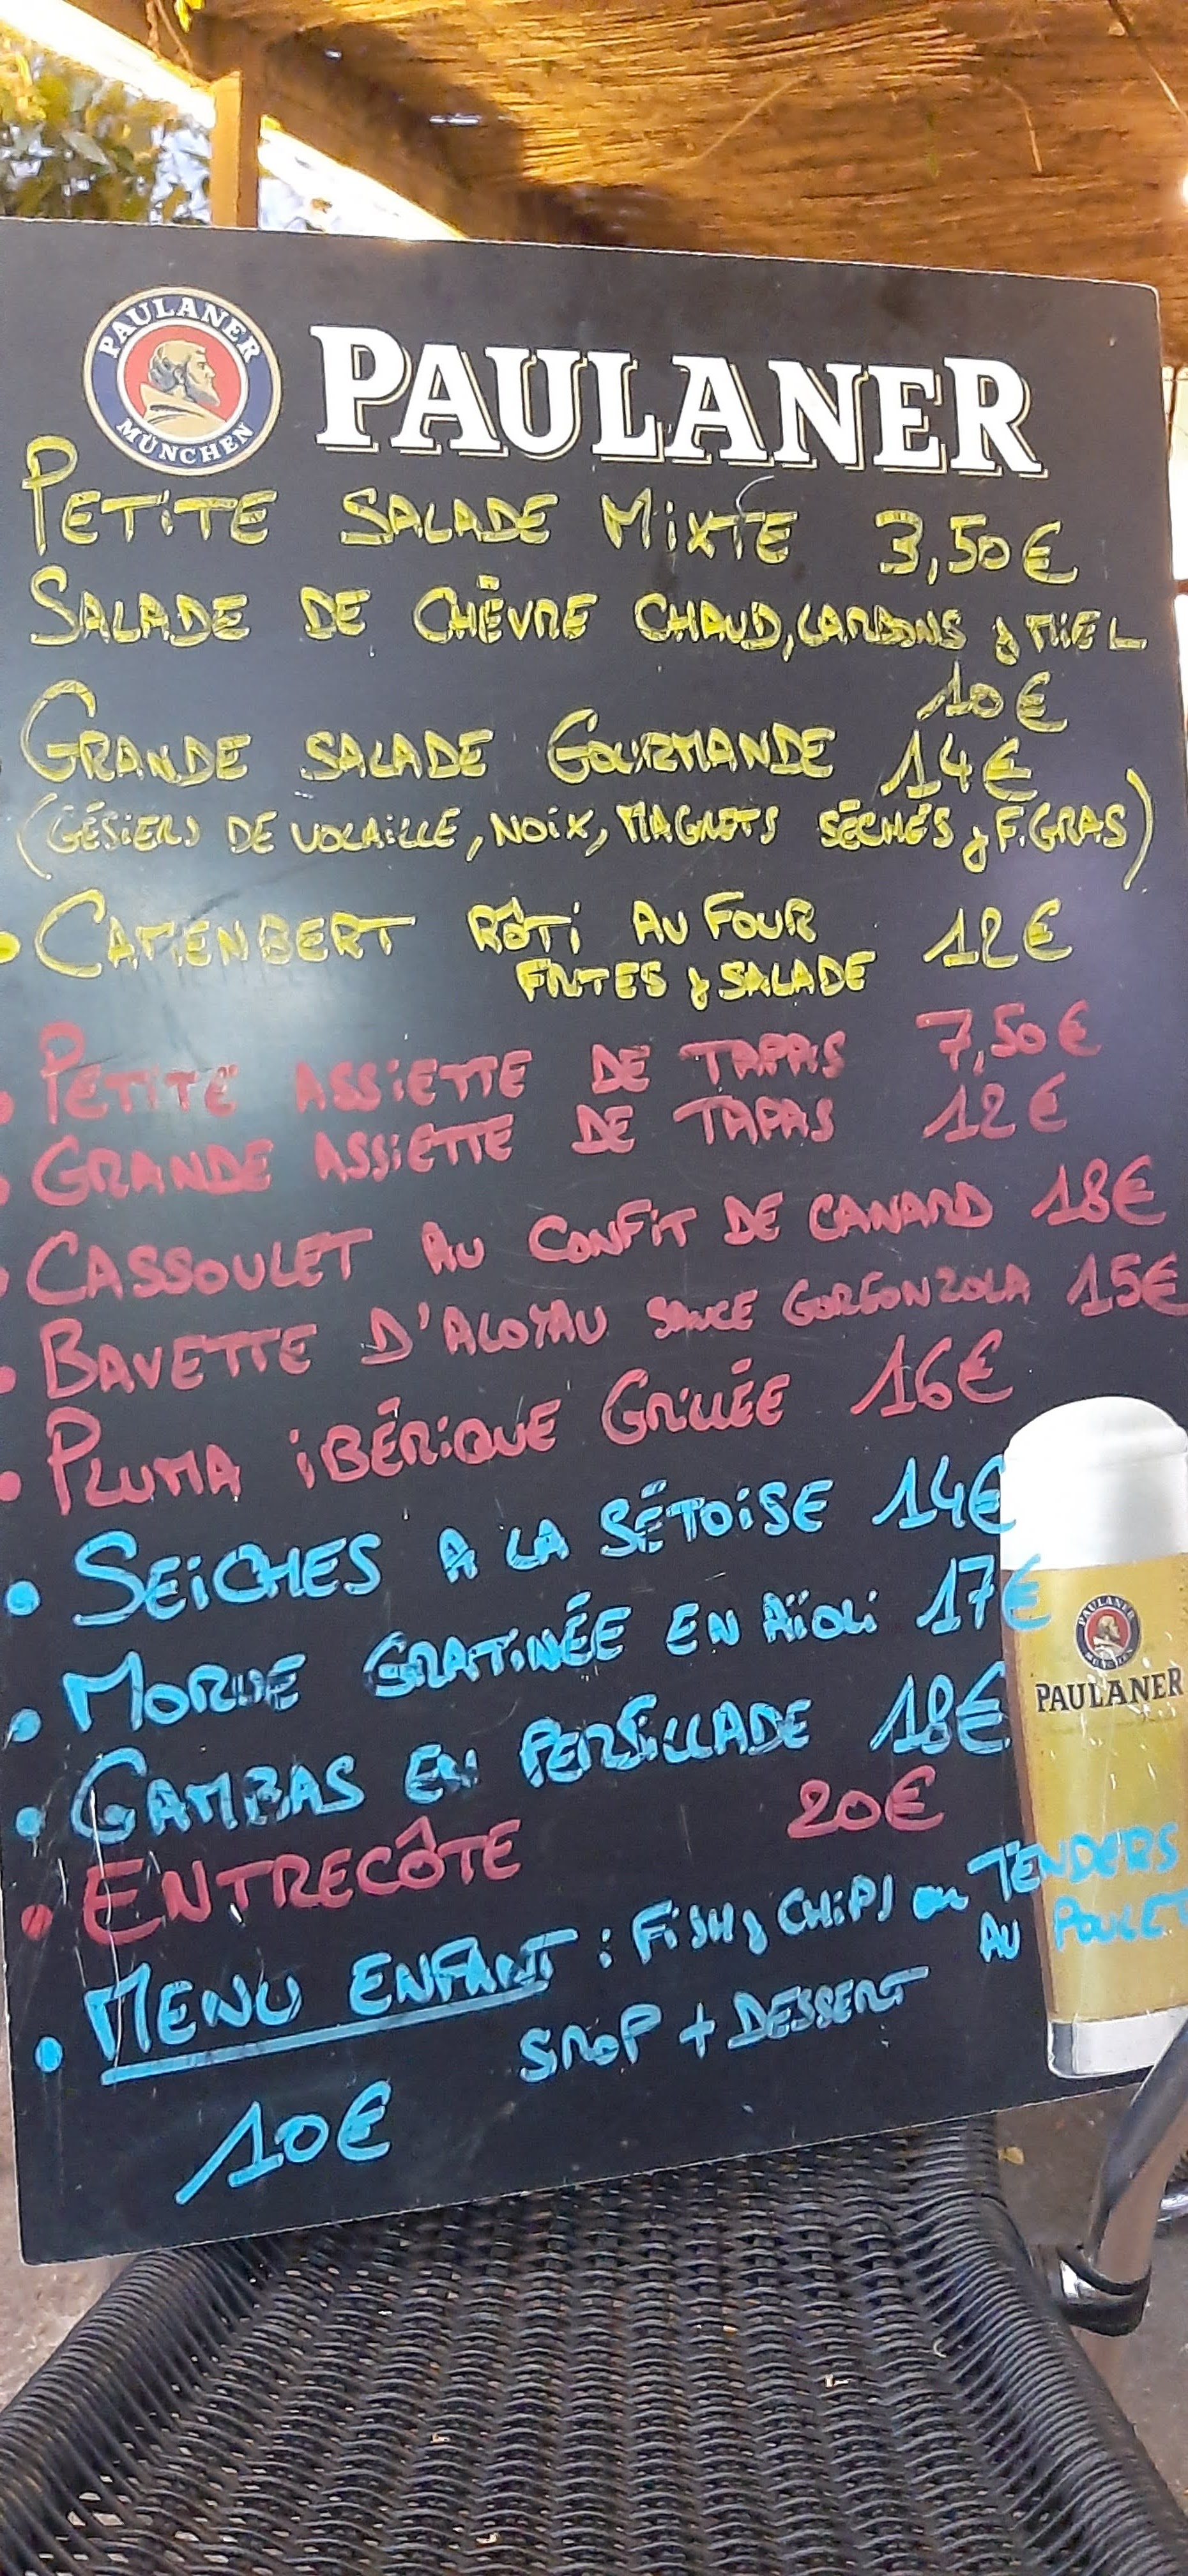 PAULANER
MÜNCHEN
PAULANER
PETITE SALADE MIXTE 3,50€
SALADE DE CHÈVRE CHAUD, LARDONS & MIEL
10€
GRANDE SALADE GOURMANDE 14€
(GÉSIERS DE VOLAILLE, NOIX, MAGRETS SÉCHÉS & F.GRAS)
• CAMENBERT RÔTI AU FOUR 12€
FRITES & SALADE
• PETITE ASSIETTE DE TAPAS 7,50€
• GRANDE ASSIETTE DE TAPAS 12€
• CASSOULET AU CONFIT DE CANARD 18€
• BAVETTE D'ALOYAU SAUCE GORGONZOLA 15€
• PLUMA IBÉRIQUE GRILLÉE 16€
• SEICHES A LA SÉTOISE 14€
• MORUE GRATINÉE EN AÏOLI 17€
• GAMBAS EN PERSILLADE 18€
• ENTRECÔTE 20€
• MENU ENFANT : FISH & CHIPS ou TENDERS
AU POULET
SIROP + DESSERT
10€
PAULANER
MÜNCHEN
PAULANER